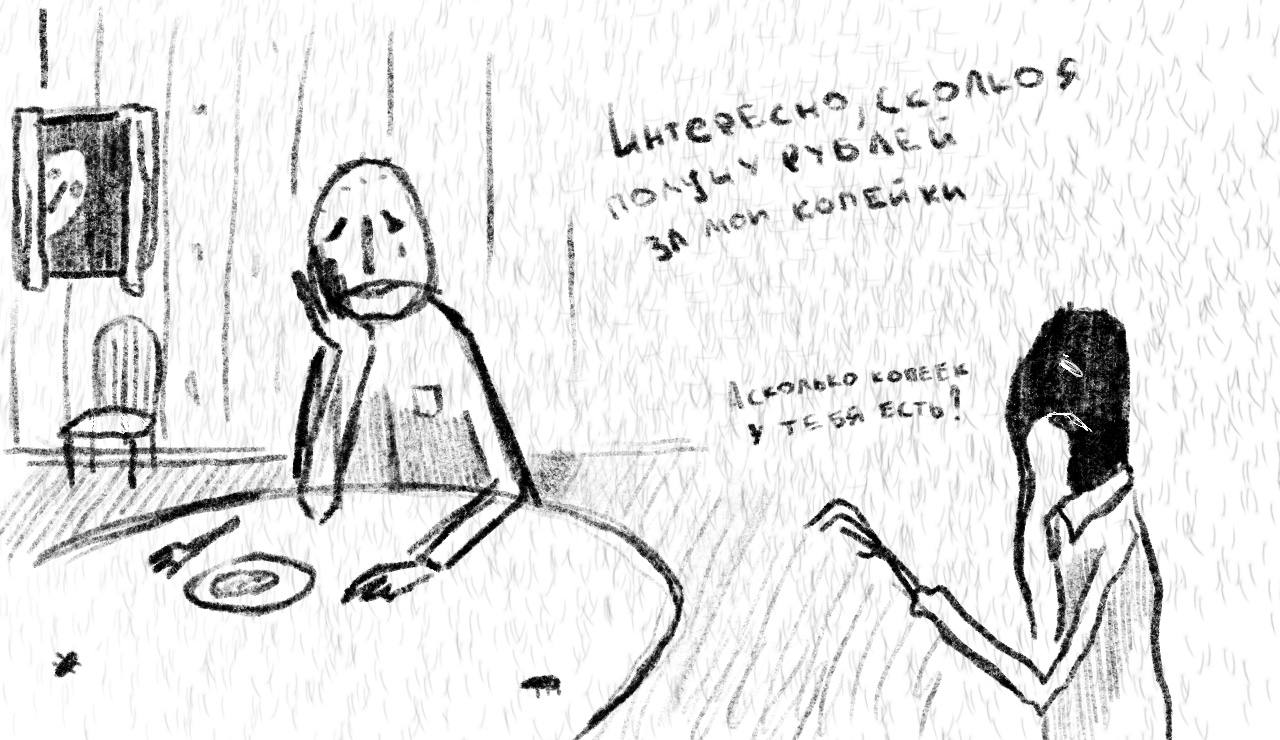 Интересно, сколько я
получу рублей
за мои копейки
А сколько копеек
у тебя есть?